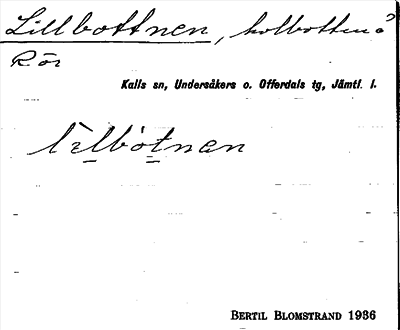 Lillbottnen, kolbotten?
Rör
Kalls sn, Undersåkers o. Offerdals tg, Jämtl. l.
lìlbòtnan
BERTIL BLOMSTRAND 1936